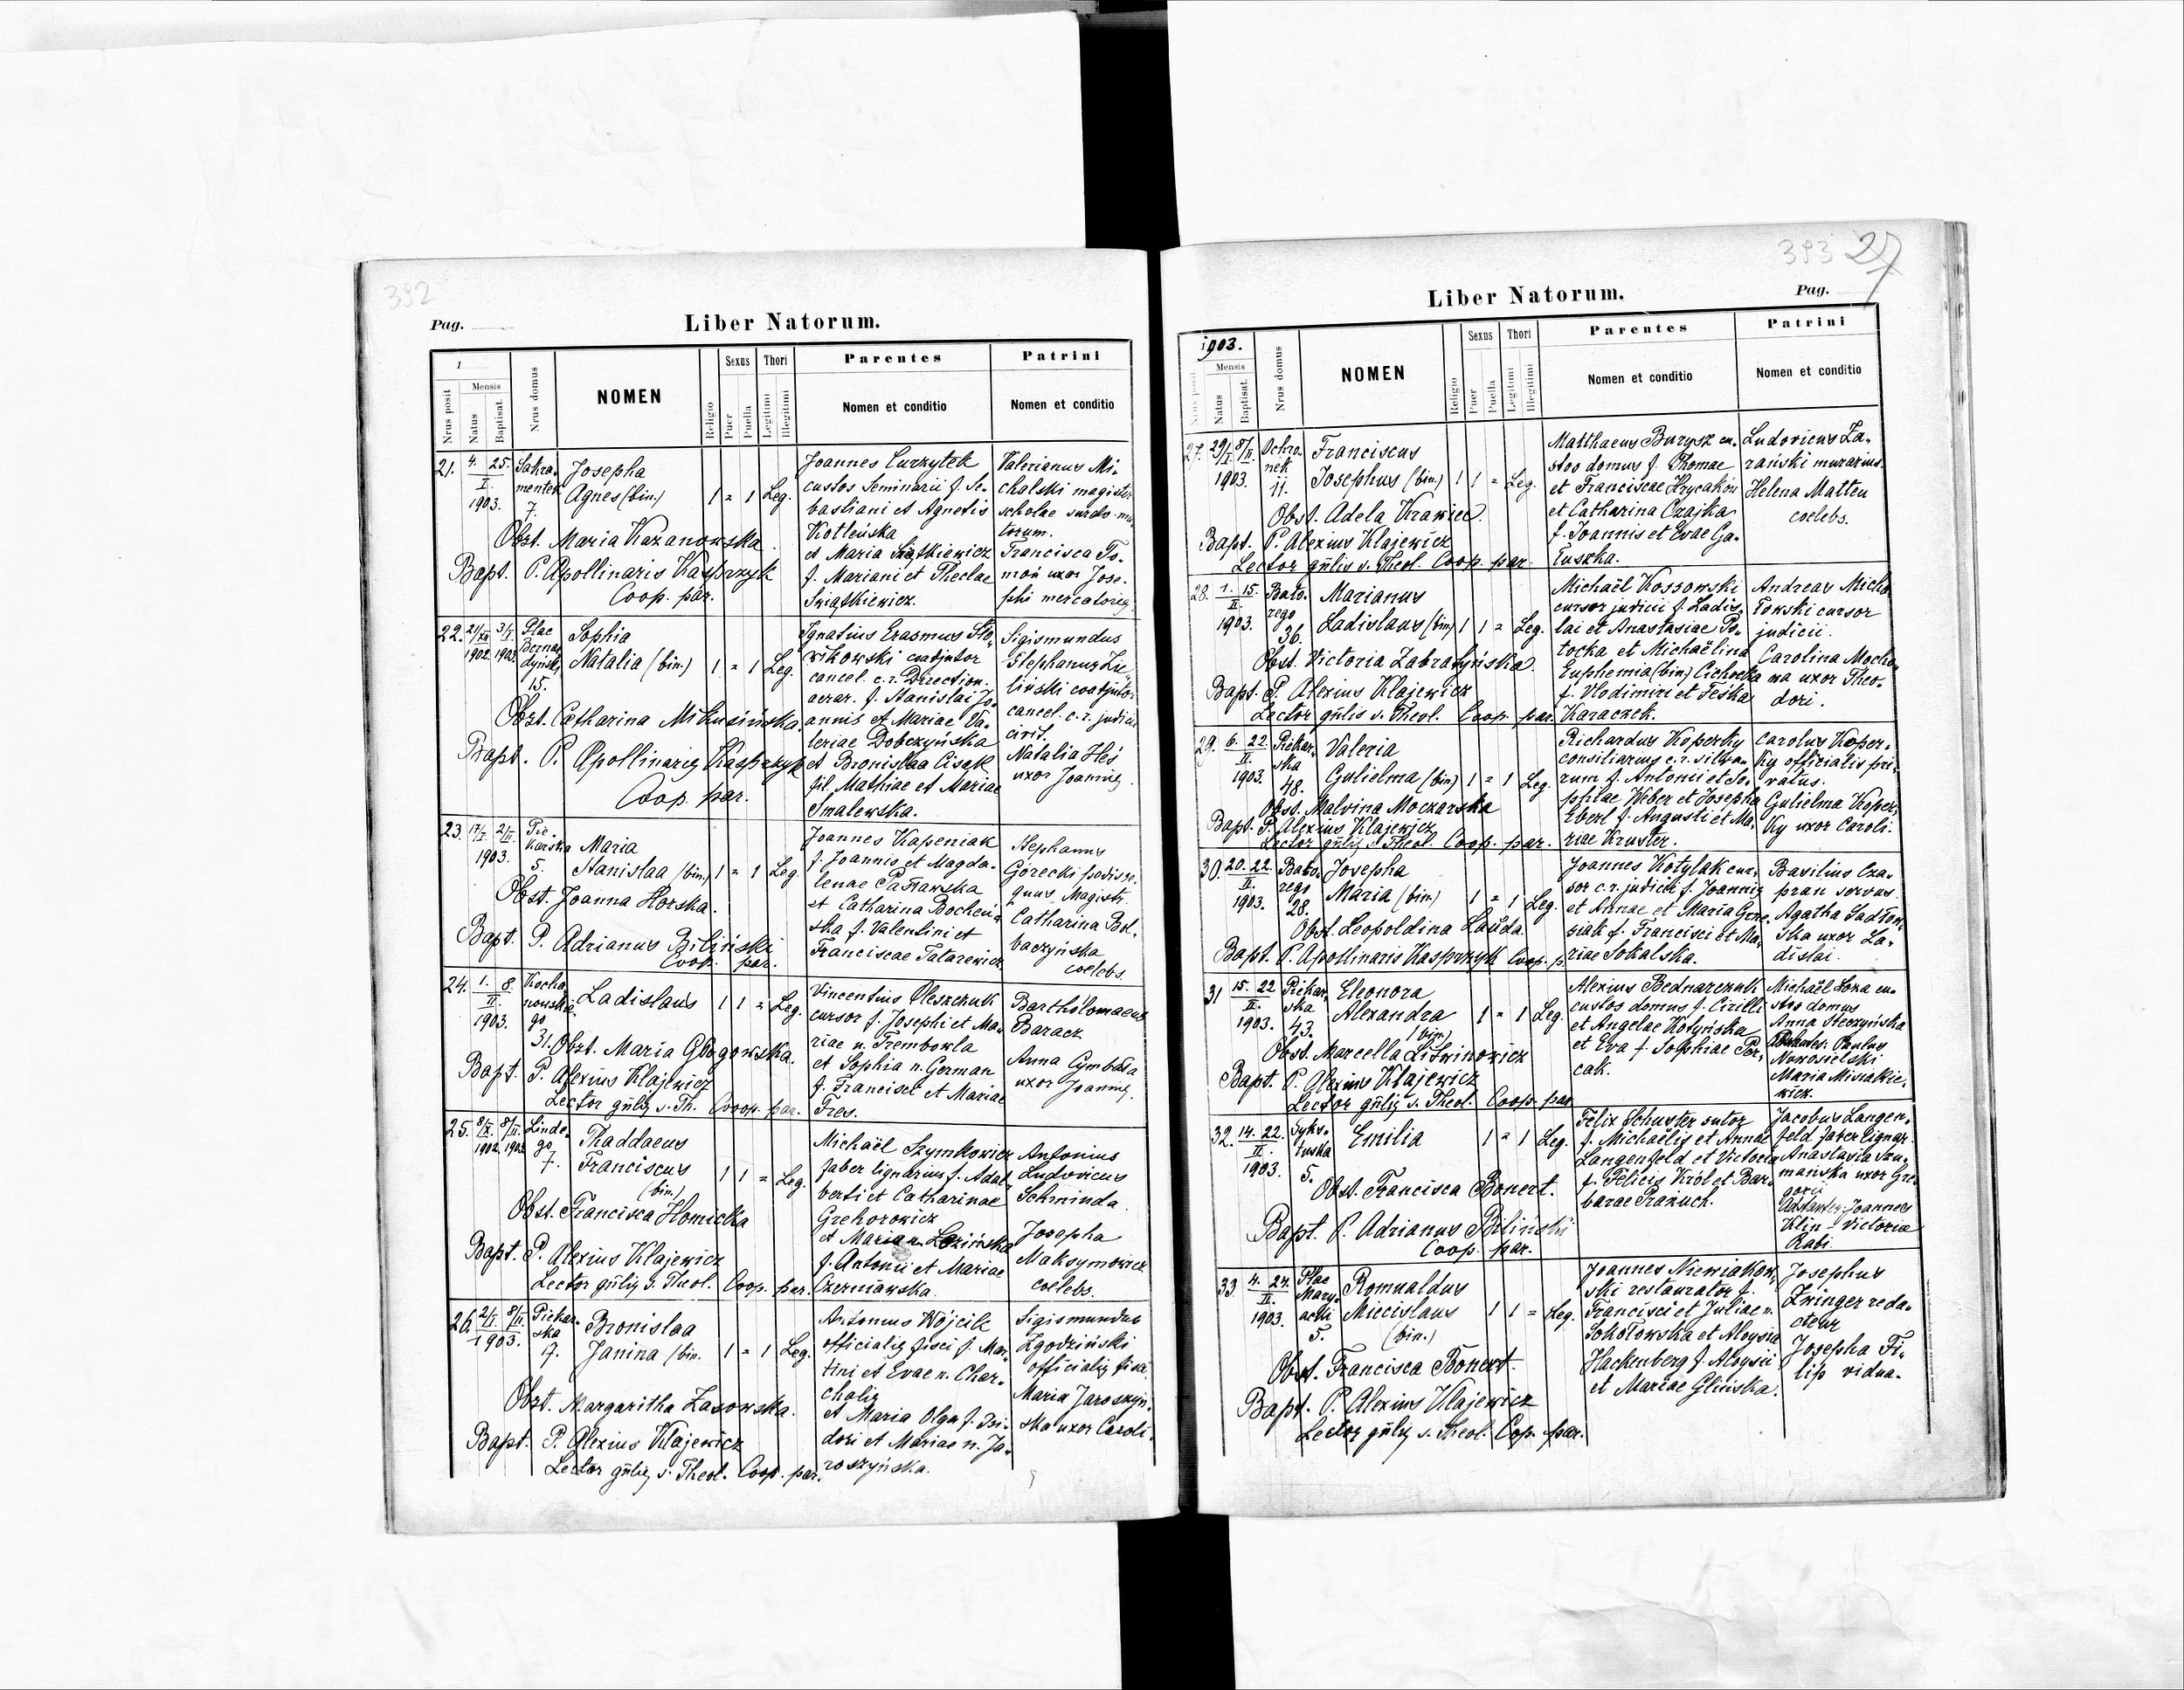 392
Pag.
Liber Natorum.
1
Nrus posit
Mensis
Natus
Baptisat.
Nrus domus
NOMEN
Religio
Sexus
Puer
Puella
Thori
Legitimi
Illegitimi
Parentes
Nomen et conditio
Patrini
Nomen et conditio
21. 4. 25. I. 1903.
Sakra-
mentek
7.
Josepha
Agnes (bin.)
1 = 1 Leg.
Obst. Maria Kazanowska.
Bapt. P. Apollinaris Kasprzyk
Coop. par.
Joannes Curzytek
custos Seminarii f. Se-
bastiani et Agnetis
Kotleńska
et Maria Siątkiewicz
f. Mariani et Theclae
Swiątkiewicz.
Valerianus Mi-
chalski magister
scholae surdo mu
torum.
Francisca To-
moń uxor Jose-
phi mercatoris
22. 21/XII 1902. 3/I. 1903.
Plac
Bernar
dyński
15.
Sophia
Natalia (bin.)
1 = 1 Leg.
Obst. Catharina Mikusińska.
Bapt. P. Apollinaris Kasprzyk
Coop. par.
Ignatius Erasmus Sło-
wikowski coadjutor
cancel. c. r. Direction.
aerar. f. Stanislai Jo-
annis et Mariae Va-
leriae Dobczyńska
et Bronislaa Cisak
fil. Mathiae et Mariae
Smalewska.
Sigismundus
Stephanus Zie
liński coadjutor
cancel. c. r. judicii
civit.
Natalia Heś
uxor Joannis.
23. 17/I. 2/II. 1903.
Pie-
karska
5.
Maria
Stanislaa (bin.)
1 = 1 Leg.
Obst. Joanna Horska.
Bapt. P. Adrianus Biliński
Coop. par.
Joannes Kapeniak
f. Joannis et Magda-
lenae Pastawska
et Catharina Bocheń
ska f. Valentini et
Franciscae Tatarewicz
Stephanus
Górecki
Magistr.
Catharina Bol-
baczyńska
coelebs
24. 1. 8. II. 1903.
Kocha
nowskie
go
31.
Ladislaus
1 1 = Leg.
Obst. Maria Głogowska.
Bapt. P. Alexius Klajewicz
Lector gnlis s. Th. Coop. par.
Vincentius Oleszczuk
cursor f. Josephi et Ma-
riae n. Trembowla
et Sophia n. German
f. Francisci et Mariae
Fres.
Bartholomaeus
Baracz
Anna Cymbała
uxor Joannis.
25. 8/X. 1902. 8/II. 1903
Linde-
go
7.
Thaddaeus
Franciscus
(bin.)
1 1 = Leg.
Obst. Francisca Homicka
Bapt. P. Alexius Klajewicz
Lector gnlis s. Theol. Coop. par.
Michaël Szymkowicz
faber lignarius f. Adal-
berti et Catharinae
Grehorowicz
et Maria n. Lozińska
f. Antonii et Mariae
Czerniawska.
Antonius
Ludovicus
Schminda.
Josepha
Maksymowicz
coelebs.
26. 2/I. 8/II. 1903.
Piekar-
ska
17.
Bronislaa
Janina (bin.
1 = 1 Leg.
Obst. Margaritha Lasowska.
Bapt. P. Alexius Klajewicz
Lector gnlis s. Theol. Coop. par.
Antonius Wójcik
officialis fisci f. Mar-
tini et Evae n. Char-
chalis
et Maria Olga f. Isi-
dori et Mariae n. Ja-
roszyńska.
Sigismundus
Zgodziński
officialis fisci
Maria Jaroszyń-
ska uxor Caroli.
393 27
Liber Natorum.
Pag.
1903.
Nrus posit
Mensis
Natus
Baptisat.
Nrus domus
NOMEN
Religio
Sexus
Puer
Puella
Thori
Legitimi
Illegitimi
Parentes
Nomen et conditio
Patrini
Nomen et conditio
27. 29/I. 8/II. 1903.
Ochro-
nek
11.
Franciscus
Josephus (bin.)
1 1 = Leg.
Obst. Adela Krawiec.
Bapt. P. Alexius Klajewicz
Lector gnlis s. Theol. Coop. par.
Matthaeus Burysz cu-
stos domus f. Thomae
et Franciscae Hrycaków
et Catharina Czajka
f. Joannis et Evae Ga-
łuszka.
Ludovicus Za-
rański murarius.
Helena Matteu
coelebs.
28. 1. 15. II. 1903.
Bato-
rego
36.
Marianus
Ladislaus (bin)
1 1 = Leg.
Obst. Victoria Zabratyńska.
Bapt. P. Alexius Klajewicz
Lector gnlis s. Theol. Coop. par.
Michaël Kossowski
cursor judicii f. Ladis-
lai et Anastasiae Po-
tocka et Michaëlina
Euphemia (bin) Cichocka
f. Vlodimiri et Teskа
Karaczek.
Andreas Micha
łowski cursor
judicii.
Carolina Mocho-
wa uxor Theo-
dori.
29. 6. 22. II. 1903.
Piekar-
ska
48.
Valeria
Gulielma (bin)
1 = 1 Leg.
Obst. Malvina Moczarska
Bapt. P. Alexius Klajewicz
Lector gnlis s. Theol. Coop. par.
Richardus Koperky
consiliarius c. r. silva-
rum f. Antonii et So-
phiae Weber et Josepha
Eberl f. Augusti et Ma-
riae Kruster.
Carolus Koper-
ky officialis pri-
vatus.
Gulielma Koper-
ky uxor Caroli.
30. 20. 22. II. 1903.
Bato-
rego
28.
Josepha
Maria (bin)
1 = 1 Leg.
Obst. Leopoldina Lauda.
Bapt. P. Apollinaris Kasprzyk Coop. p.
Joannes Kotylak cur-
sor c. r. judicii f. Joannis
et Annae et Maria Grze-
siak f. Francisci et Ma-
riae Sokalska.
Basilius Cza-
pran servus
Agatha Sadłow-
ska uxor La-
dislai.
31 15. 22 II. 1903.
Piekar-
ska
43.
Eleonora
Alexandra
(bin)
1 = 1 Leg.
Obst. Marcella Litwinowicz
Bapt. P. Alexius Klajewicz
Lector gnlis s. Theol. Coop. par.
Alexius Bednarczuk
custos domus f. Cirilli
et Angelae Kotyńska
et Eva f. Sophiae Por-
cak.
Michaël Loza cu-
stos domus
Anna Steczyńska
Paulus
Nowosielski
Maria Misiakie-
wicz.
32. 14. 22. II. 1903.
Syks-
tuska
5.
Emilia
1 = 1 Leg.
Obst. Francisca Bonert.
Bapt. P. Adrianus Biliński
Coop. par.
Felix Schuster sutor
f. Michaëlis et Annae
Langenfeld et Victoria
f. Felicis Król et Bar-
barae Prażuch.
Jacobus Langen-
feld faber lignar.
Anastasia Szu-
mańska uxor Gre
gorii
Adstantes: Joannes
Klin - Victoria
Rabi.
33 4. 24. II. 1903.
Plac
Mary-
acki
5.
Romualdus
Miecislaus
(bin.)
1 1 = Leg.
Obst. Francisca Bonert.
Bapt. P. Alexius Klajewicz
Lector gnlis s. Theol. Cop. par.
Joannes Niewiakow-
ski restaurator f.
Francisci et Juliae n.
Sokołowska et Aloysia
Hackenberg f. Aloysii
et Mariae Glińska.
Josephus
Zwinger reda-
cteur
Josepha Fi-
lip vidua.